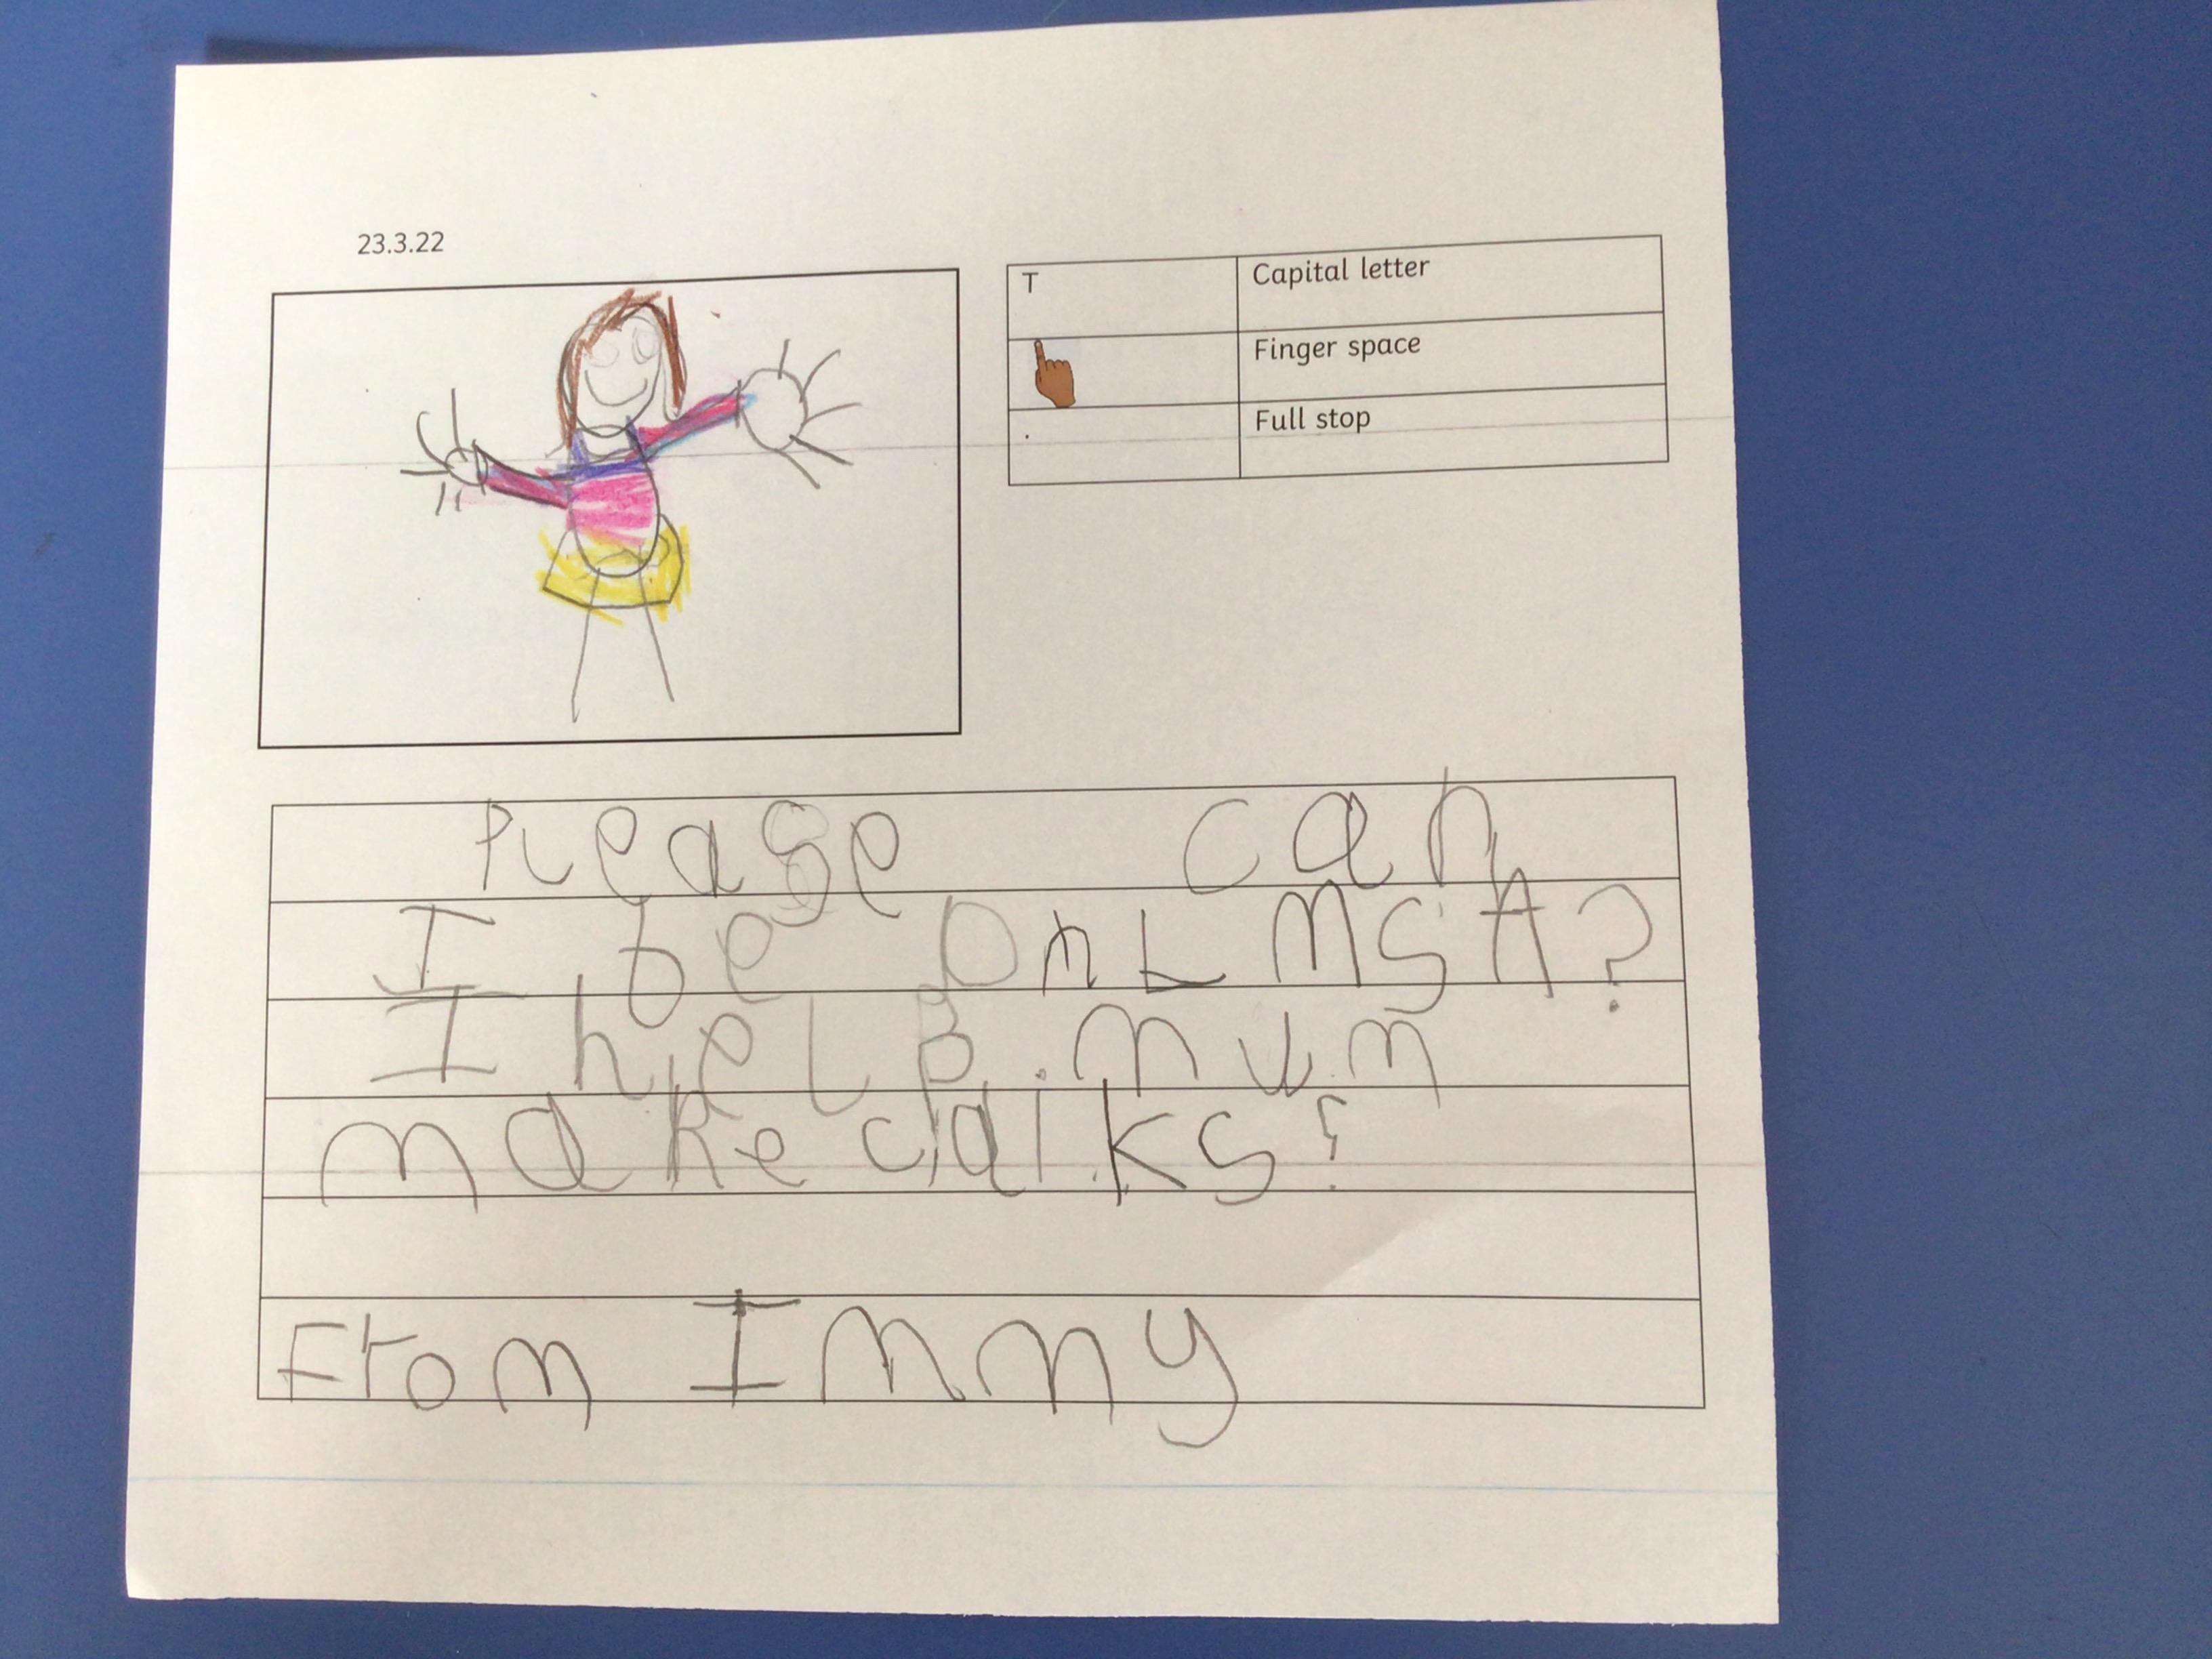 23.3.22
T Capital letter
Finger space
. Full stop
Please can
I be on LMSA?
I help mum
make caiks?
From Immy